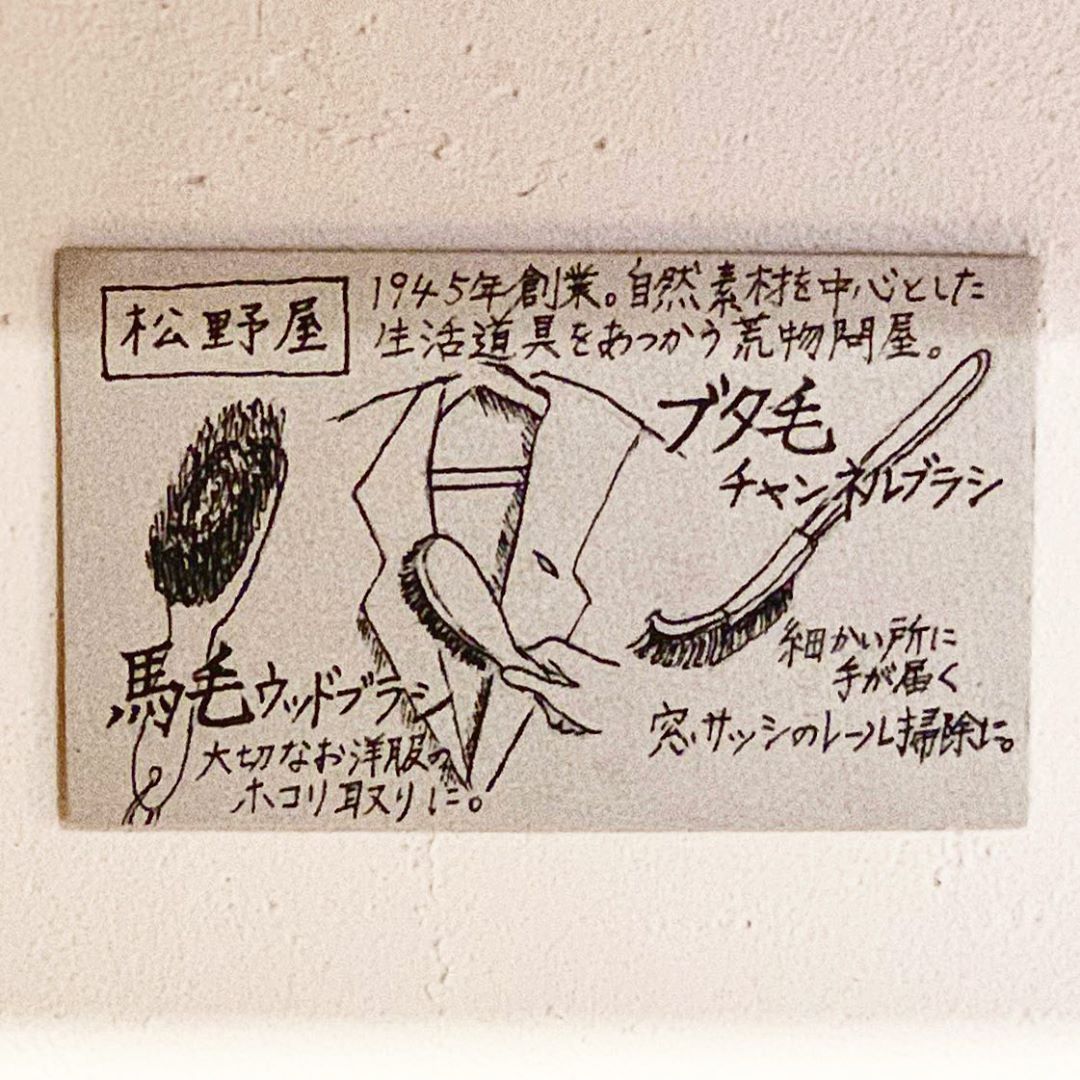 松野屋
1945年創業。自然素材を中心とした
生活道具をあつかう荒物問屋。
ブタ毛
チャンネルブラシ
細かい所に
手が届く
窓サッシのレール掃除に。
馬毛ウッドブラシ
大切なお洋服の
ホコリ取りに。